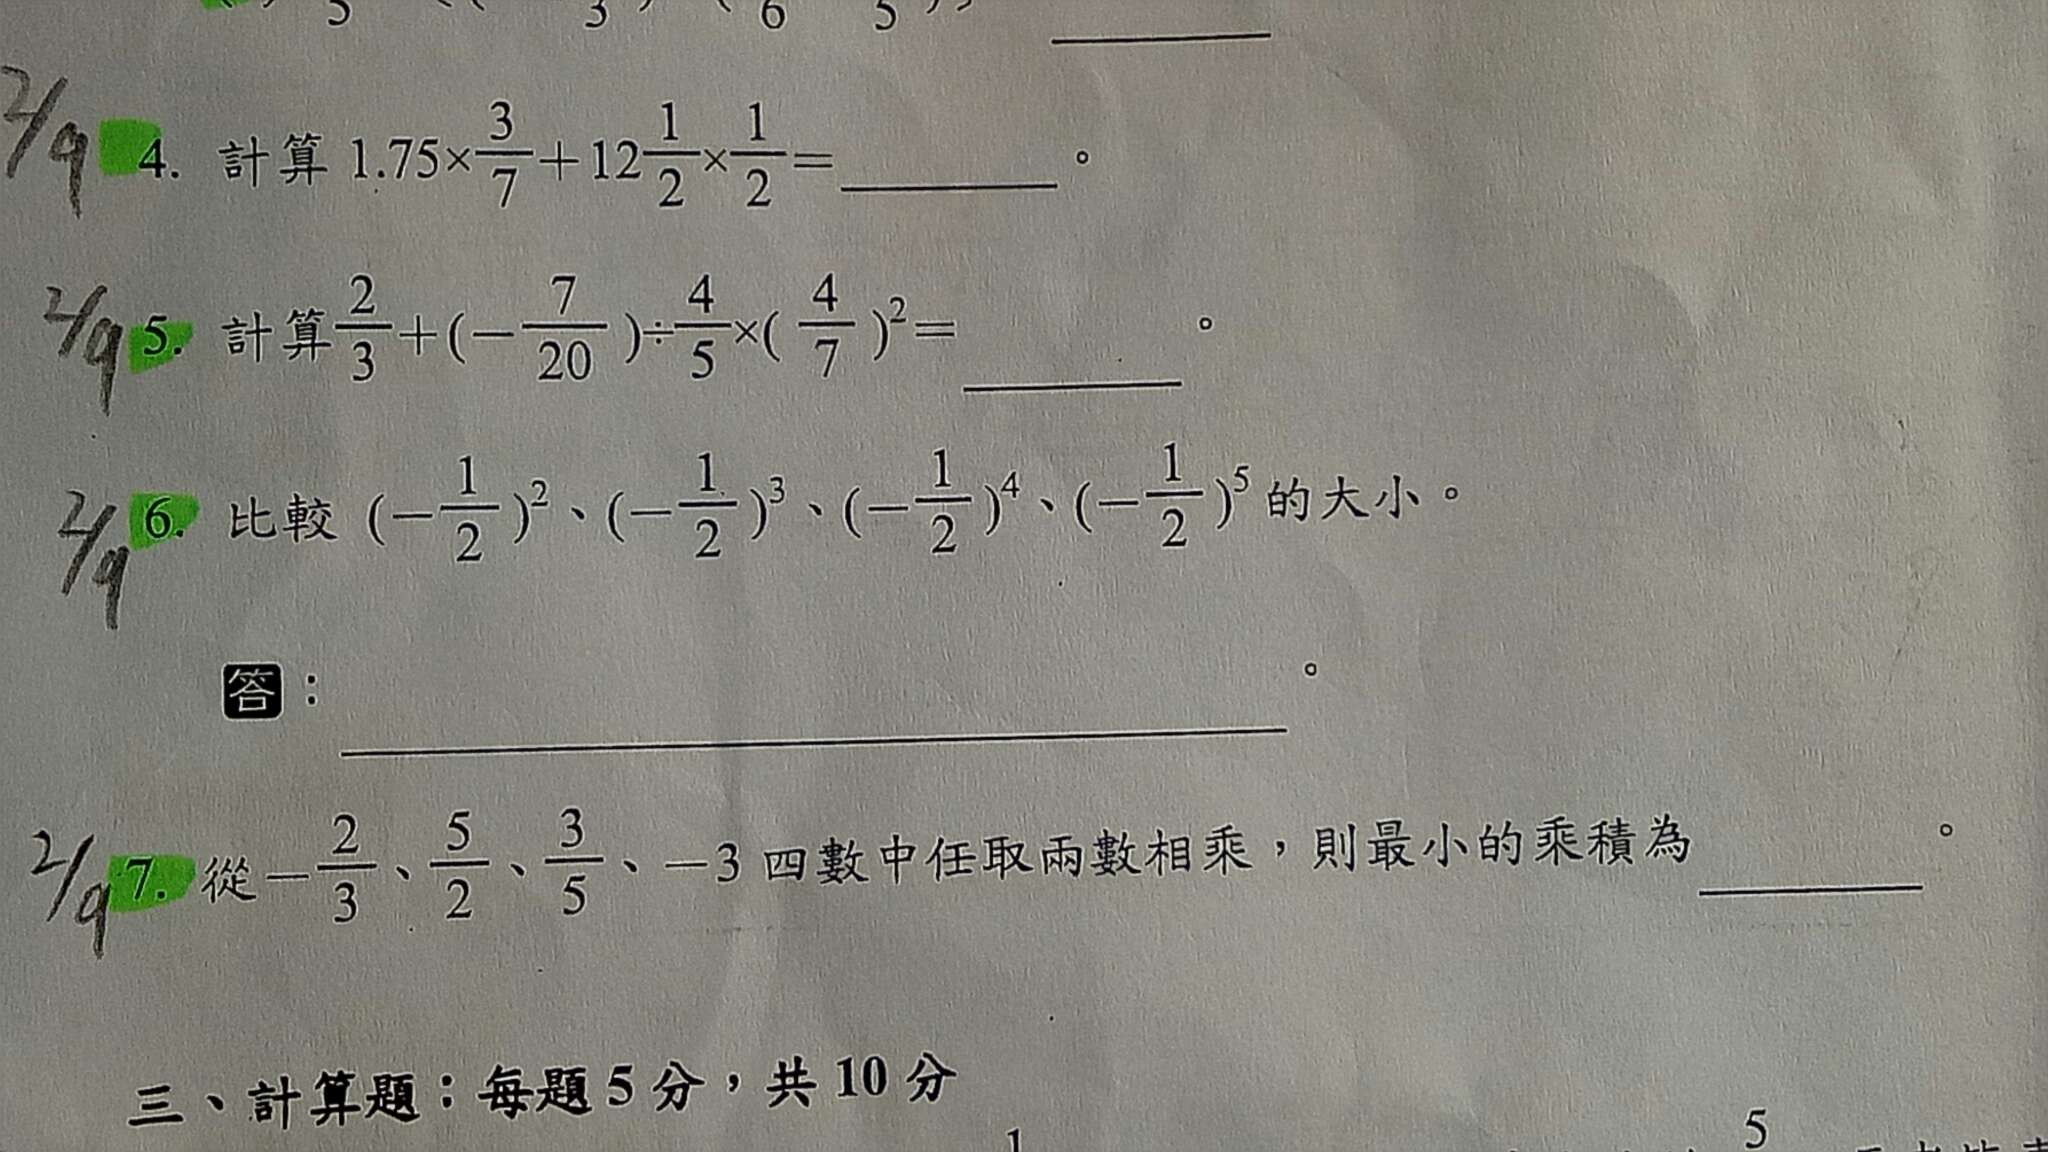 5 3 6 5
2/9 4. 計算 1.75×3/7+12 1/2×1/2=______。
2/9 5. 計算 2/3+(-7/20)÷4/5×(4/7)²=______。
2/9 6. 比較 (-1/2)²、(-1/2)³、(-1/2)⁴、(-1/2)⁵ 的大小。
答：______。
2/9 7. 從 -2/3、5/2、3/5、-3 四數中任取兩數相乘，則最小的乘積為______。
三、計算題：每題 5 分，共 10 分
1 5